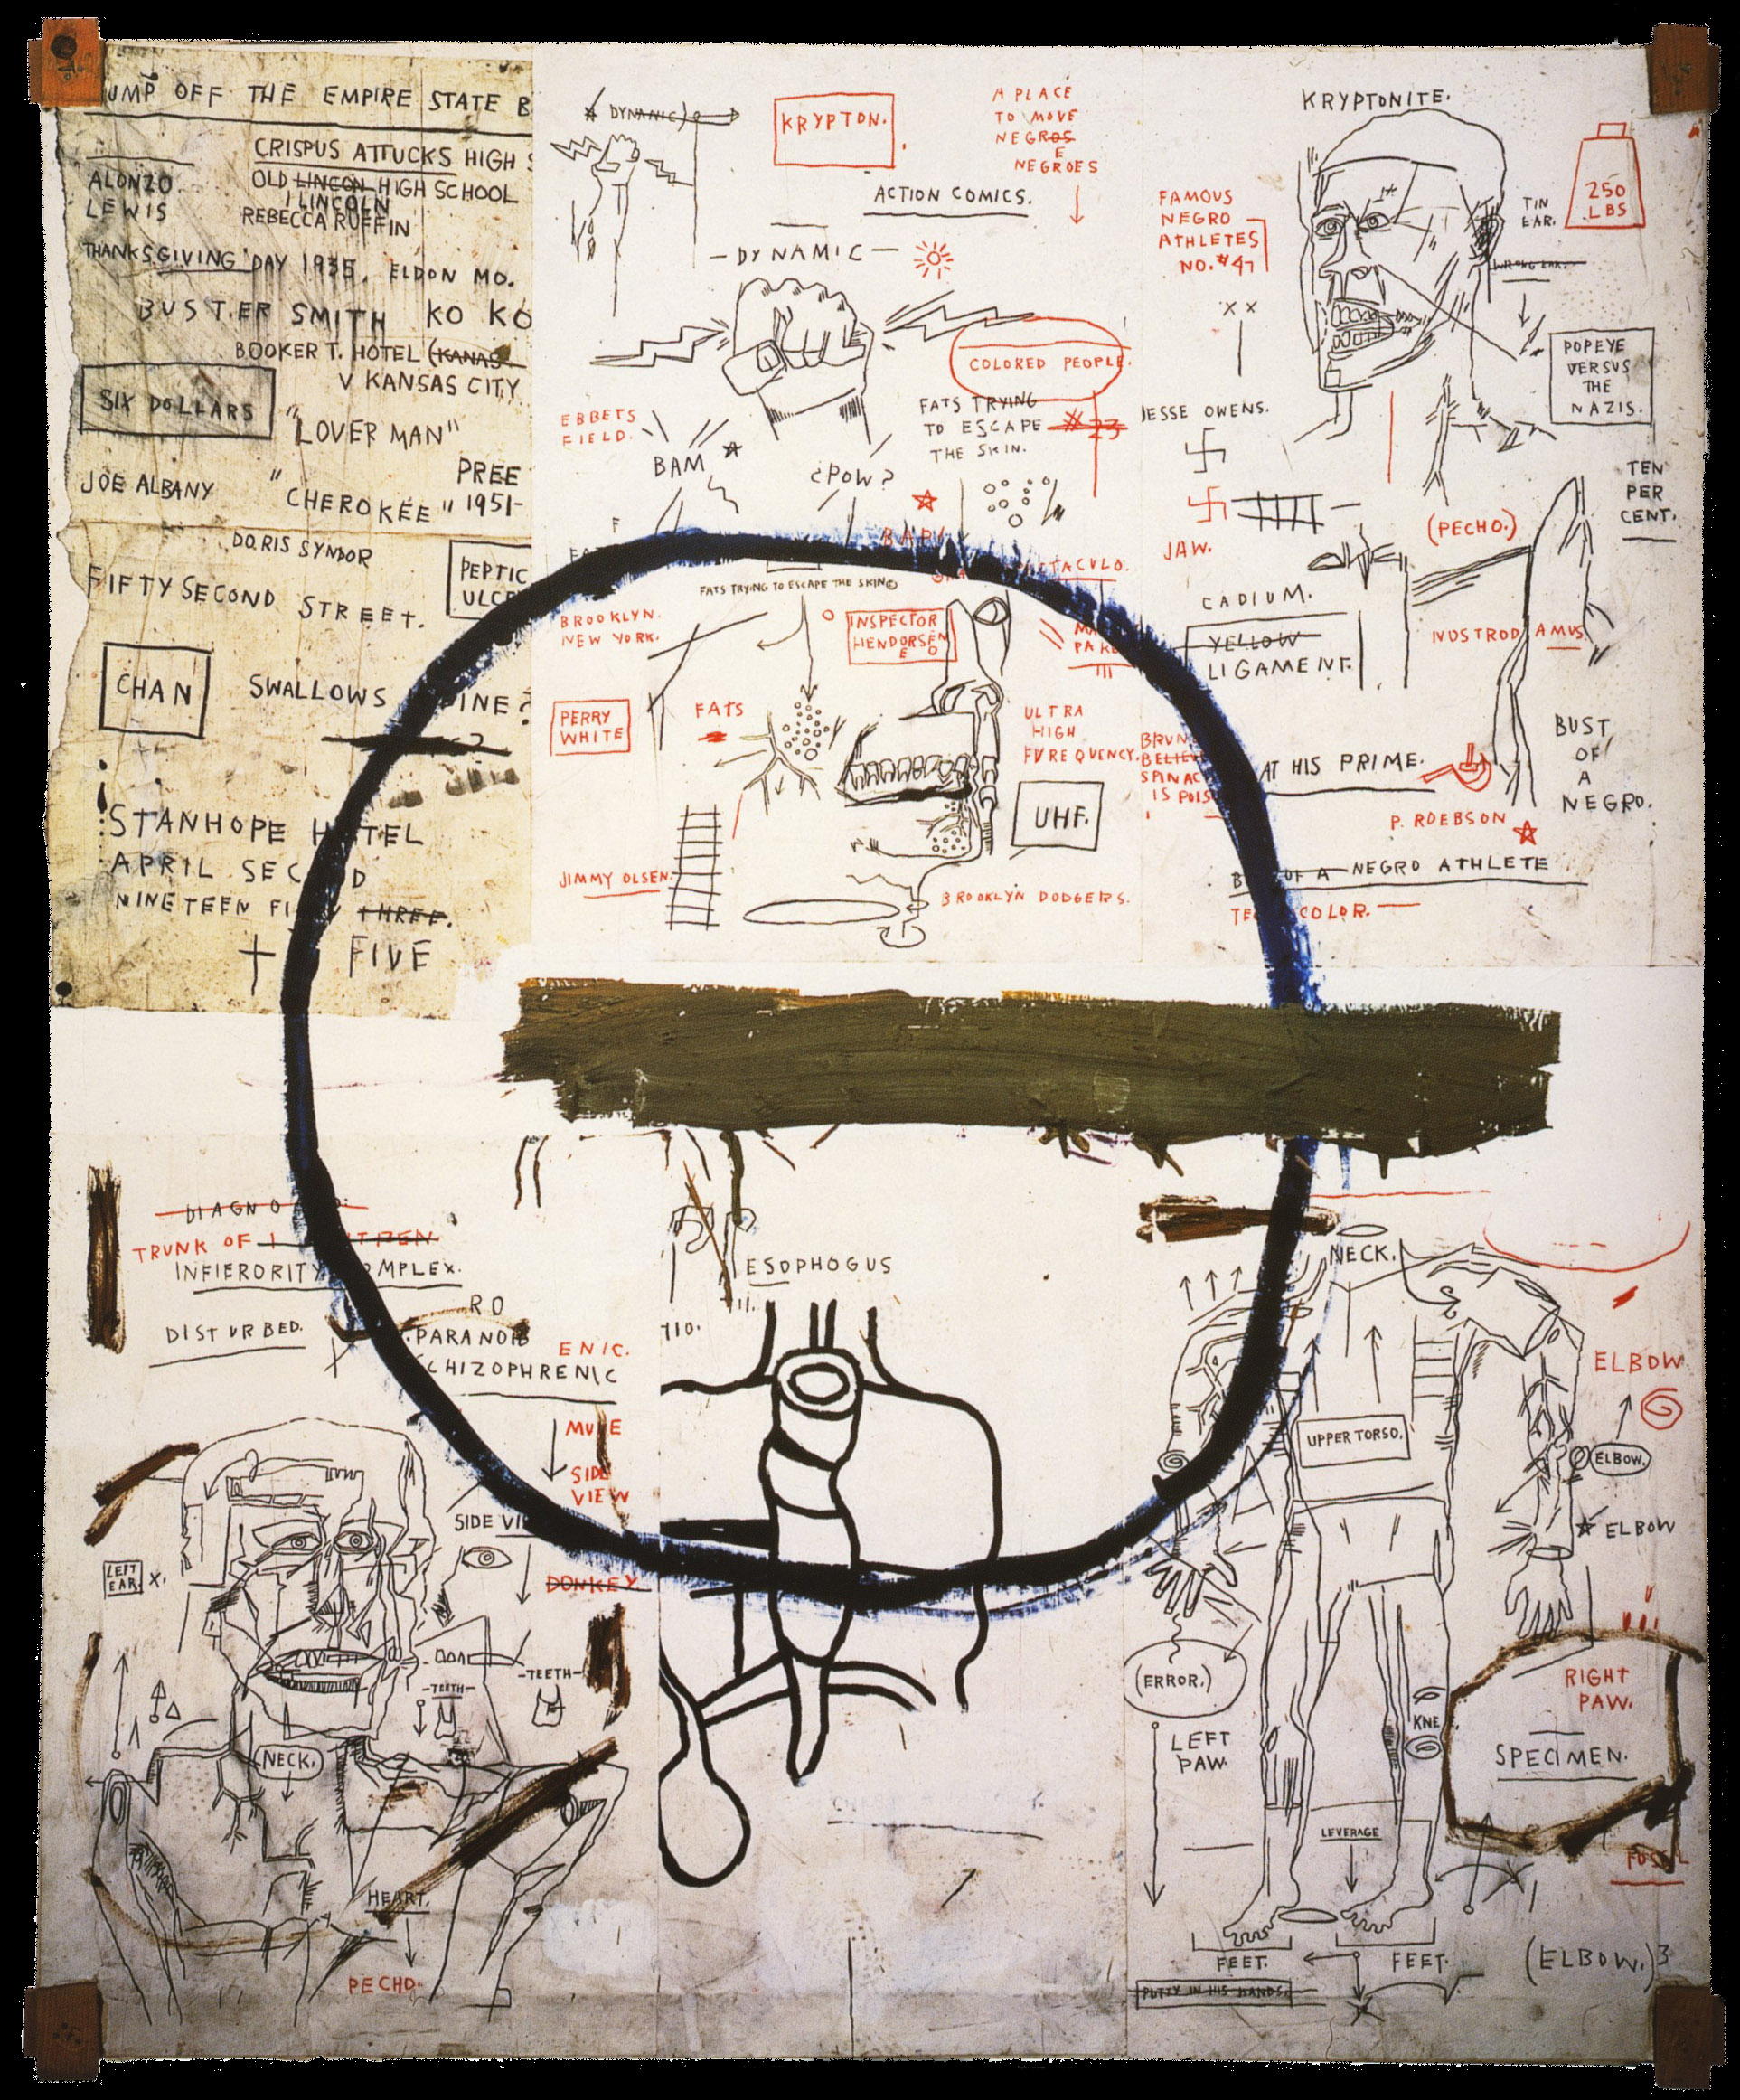 UMP OFF THE EMPIRE STATE B
CRISPUS ATTUCKS HIGH S
ALONZO
LEWIS
OLD LINCON HIGH SCHOOL
LINCOLN
REBECCA RUFFIN
THANKSGIVING DAY 1938, ELDON MO.
BUSTER SMITH KO KO
BOOKER T. HOTEL (KANAS
V KANSAS CITY
SIX DOLLARS
"LOVER MAN"
JOE ALBANY
"CHEROKEE"
PREE
1951-
DORIS SYNDOR
FIFTY SECOND STREET.
PEPTIC
ULCE
CHAN
SWALLOWS
INE?
STANHOPE H TEL
APRIL SEC D
NINETEEN FI Y THREE.
FIVE
DYNAMIC)
KRYPTON.
A PLACE
TO MOVE
NEGROS
E
NEGROES
ACTION COMICS.
-DYNAMIC-
COLORED PEOPLE.
EBBETS
FIELD.
BAM
¿POW?
FATS TRYING
TO ESCAPE
THE SKIN.
#23
F
TACULO.
FATS TRYING TO ESCAPE THE SKIN©
BROOKLYN.
NEW YORK.
INSPECTOR
HENDORSEN
E
PERRY
WHITE
FATS
ULTRA
HIGH
FVREQUENCY.
UHF.
JIMMY OLSEN.
BROOKLYN DODGERS.
KRYPTONITE.
FAMOUS
NEGRO
ATHLETES
NO.#47
TIN
EAR.
250
LBS
WRONG EAR.
X X
JESSE OWENS.
POPEYE
VERSUS
THE
NAZIS.
TEN
PER
CENT.
JAW.
(PECHO.)
CADIUM.
YELLOW
LIGAMENT.
NOSTRODAMUS
BRUN
BELIEV
SPINAC
IS POIS
AT HIS PRIME.
BUST
OF
A
NEGRO.
P. ROEBSON
B OF A NEGRO ATHLETE
TE COLOR.
DIAGNO
TRUNK OF
INFIERORITY OMPLEX.
DISTURBED.
RO
PARANOIB
CHIZOPHRENIC
ENIC.
MULE
SIDE
VIEW
SIDE VI
DONKEY
LEFT
EAR.
X.
-TEETH-
-TEETH-
NECK.
HEART.
PECHO.
ESOPHOGUS
11.
110.
NECK.
UPPER TORSO.
ELBOW
ELBOW.
ELBOW
(ERROR.)
LEFT
PAW.
KNE
RIGHT
PAW.
SPECIMEN.
LEVERAGE
FEET.
FEET.
(ELBOW.)3
PUTTY IN HIS HANDS.